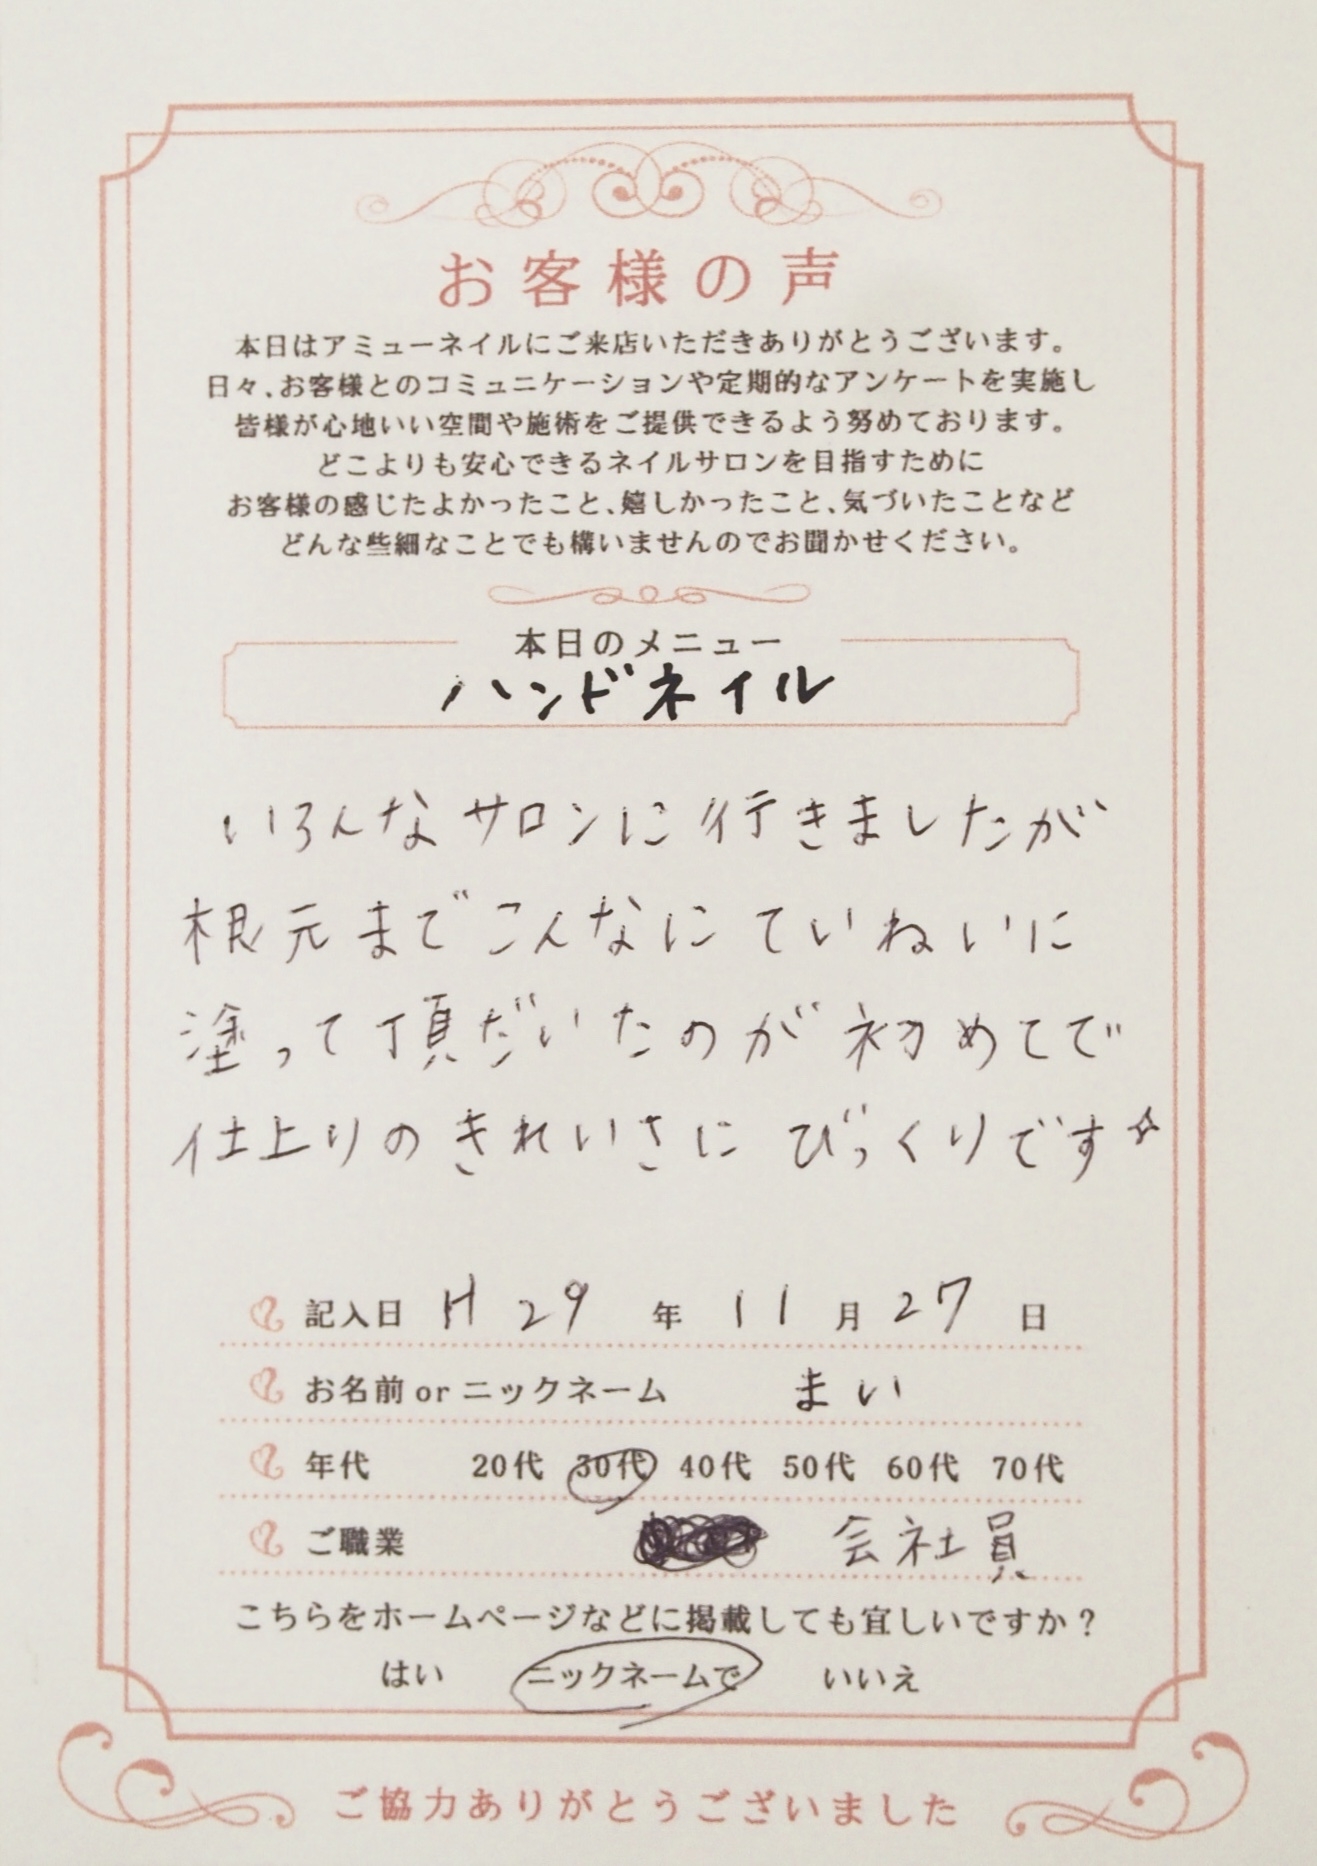 お客様の声
本日はアミューネイルにご来店いただきありがとうございます。
日々、お客様とのコミュニケーションや定期的なアンケートを実施し
皆様が心地いい空間や施術をご提供できるよう努めております。
どこよりも安心できるネイルサロンを目指すために
お客様の感じたよかったこと、嬉しかったこと、気づいたことなど
どんな些細なことでも構いませんのでお聞かせください。
本日のメニュー
ハンドネイル
いろんなサロンに行きましたが
根元までこんなにていねいに
塗って頂だいたのが初めてで
仕上りのきれいさにびっくりです☆
記入日 H29年11月27日
お名前 or ニックネーム まい
年代 20代 30代 40代 50代 60代 70代
ご職業 会社員
こちらをホームページなどに掲載しても宜しいですか？
はい ニックネームで いいえ
ご協力ありがとうございました